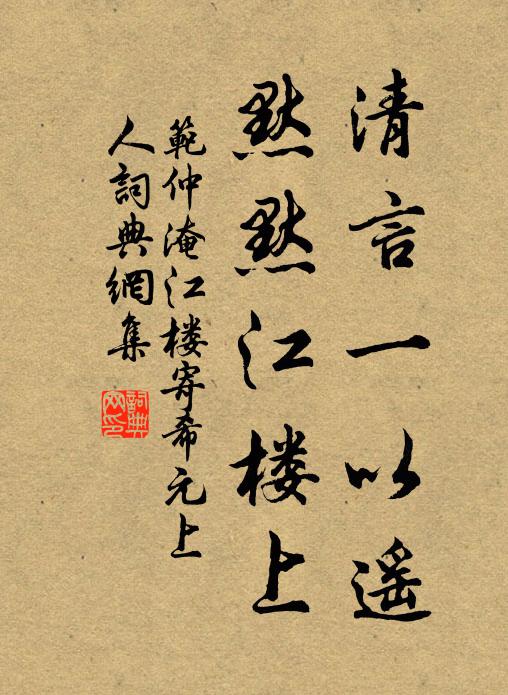 清言一以遥
默默江楼上
範仲淹江楼寄希元上
人詞典網集
詞典
网印